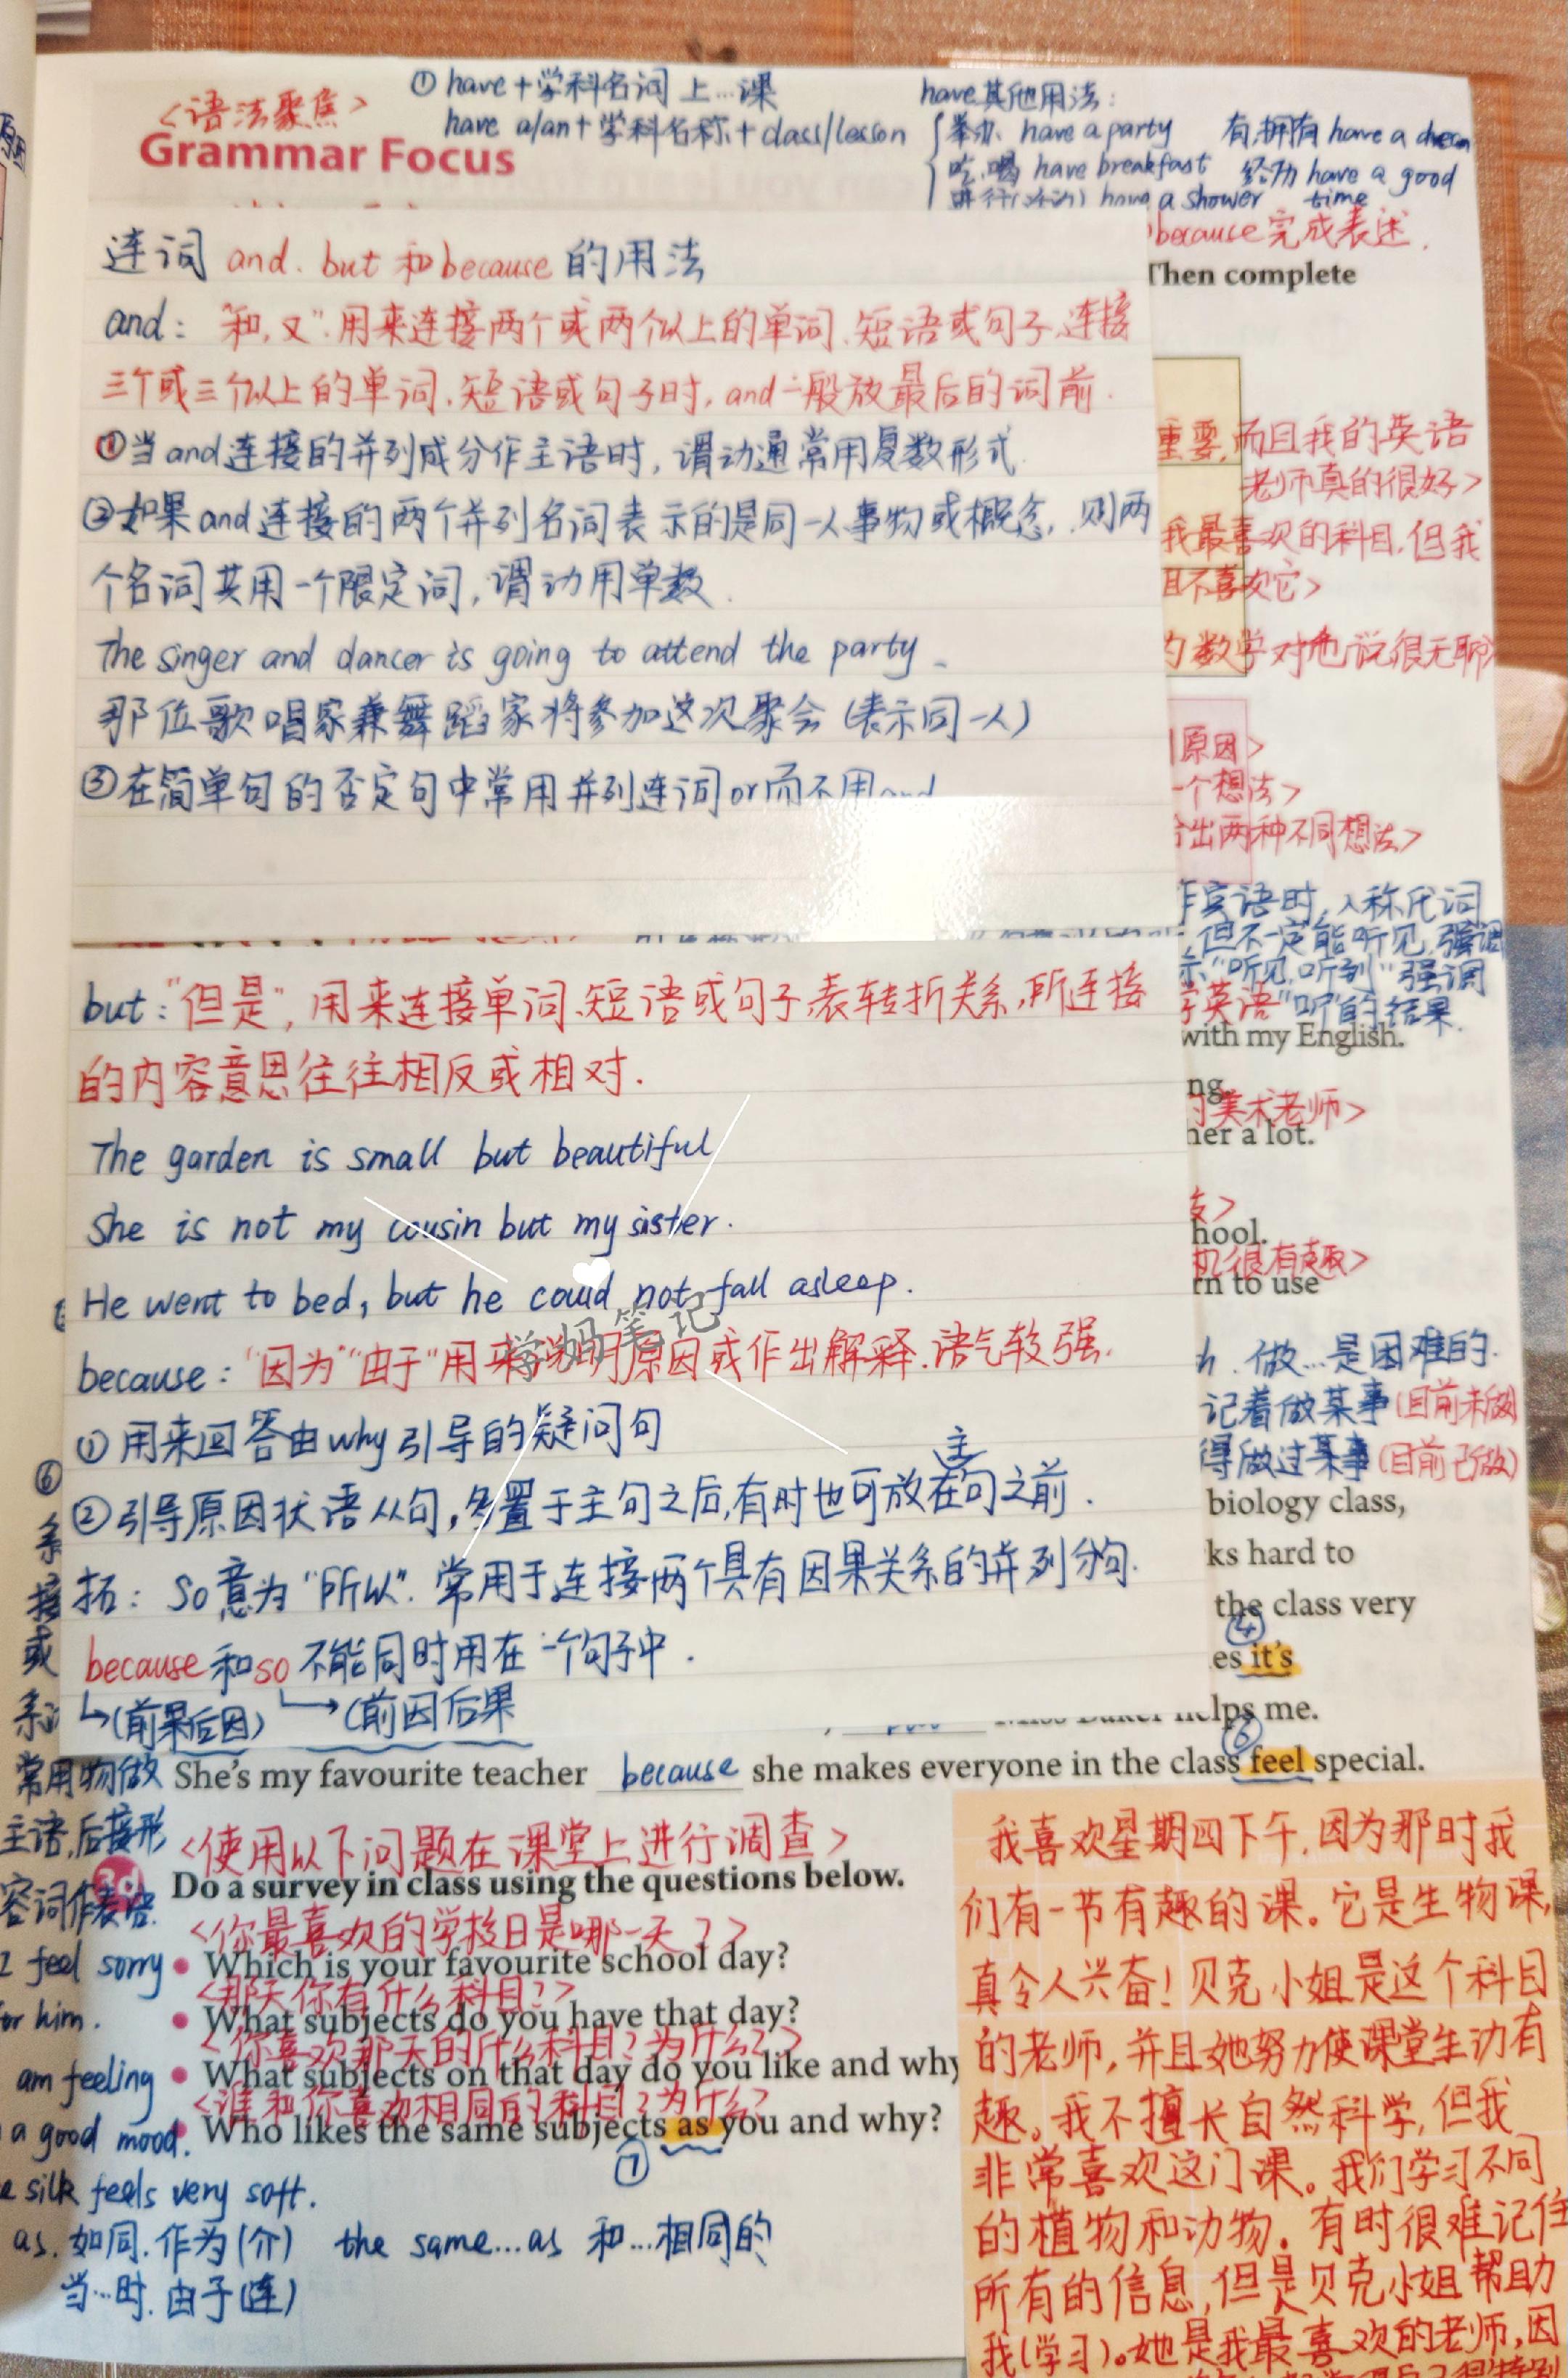 ① have+学科名词 上…课
have a/an+学科名称+class/lesson
have其他用法:
举办 have a party 有,拥有 have a dream
吃.喝 have breakfast 经历 have a good
进行(活动) have a shower time
<语法聚焦>
Grammar Focus
连词 and. but 和because 的用法
and: "和,又".用来连接两个或两个以上的单词.短语或句子.连接
三个或三个以上的单词.短语或句子时, and一般放最后的词前.
①当and连接的并列成分作主语时,谓动通常用复数形式
②如果and连接的两个并列名词表示的是同一人事物或概念,则两
个名词共用一个限定词,谓动用单数.
The singer and dancer is going to attend the party.
那位歌唱家兼舞蹈家将参加这次聚会(表示同一人)
③在简单句的否定句中常用并列连词or而不用and
because完成表述.
Then complete
重要,而且我的英语
老师真的很好>
我最喜欢的科目,但我
且不喜欢它>
数学对他说很无聊>
原因>
一个想法>
出两种不同想法>
宾语时,人称代词
但不一定能听见,强调
"听见,听到"强调
英语"听"的结果.
with my English.
ng.
美术老师>
her a lot.
hool.
机很有趣>
rn to use
h. 做…是困难的.
记着做某事(目前未做)
得做过某事(目前已做)
biology class,
ks hard to
the class very
④
es it's
but:"但是",用来连接单词.短语或句子,表转折关系,所连接
的内容意思往往相反或相对.
The garden is small but beautiful
She is not my cousin but my sister.
He went to bed, but he could not fall asleep.
学妈笔记
because: "因为""由于"用来说明原因或作出解释.语气较强.
①用来回答由why引导的疑问句
②引导原因状语从句,多置于主句之后,有时也可放在主句之前.
拓: so意为"所以".常用于连接两个具有因果关系的并列分句.
because和so不能同时用在一个句子中.
(前果后因) (前因后果
Miss Baker helps me.
⑥
She's my favourite teacher because she makes everyone in the class feel special.
⑥
系
接
或
系
常用物做
主语,后接形
容词作表语.
I feel sorry
for him.
am feeling
a good mood.
silk feels very soft.
<使用以下问题在课堂上进行调查>
3d Do a survey in class using the questions below.
<你最喜欢的学校日是哪一天?>
• Which is your favourite school day?
<那天你有什么科目?>
• What subjects do you have that day?
<你喜欢那天的什么科目?为什么?>
• What subjects on that day do you like and why
<谁和你喜欢相同的科目?为什么?
• Who likes the same subjects as you and why?
⑦
as.如同.作为(介) the same…as 和…相同的
当…时.由于(连)
我喜欢星期四下午,因为那时我
们有一节有趣的课。它是生物课,
真令人兴奋!贝克小姐是这个科目
的老师,并且她努力使课堂生动有
趣。我不擅长自然科学,但我
非常喜欢这门课。我们学习不同
的植物和动物。有时很难记住
所有的信息,但是贝克小姐帮助
我(学习)。她是我最喜欢的老师,因